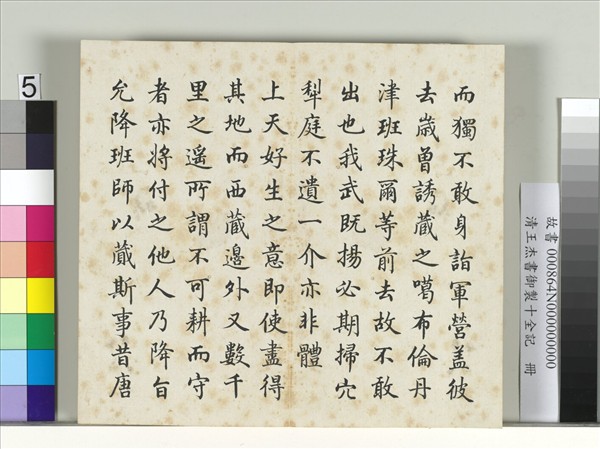 而獨不敢身詣軍營盖彼
去嵗曾誘藏之噶布倫丹
津班珠爾等前去故不敢
出也我武既揚必期掃穴
犁庭不遺一介亦非體
上天好生之意即使盡得
其地而西藏邊外又數千
里之遥所謂不可耕而守
者亦將付之他人乃降旨
允降班師以蕆斯事昔唐
5
故書000864N000000000
清王杰書御製十全記 冊